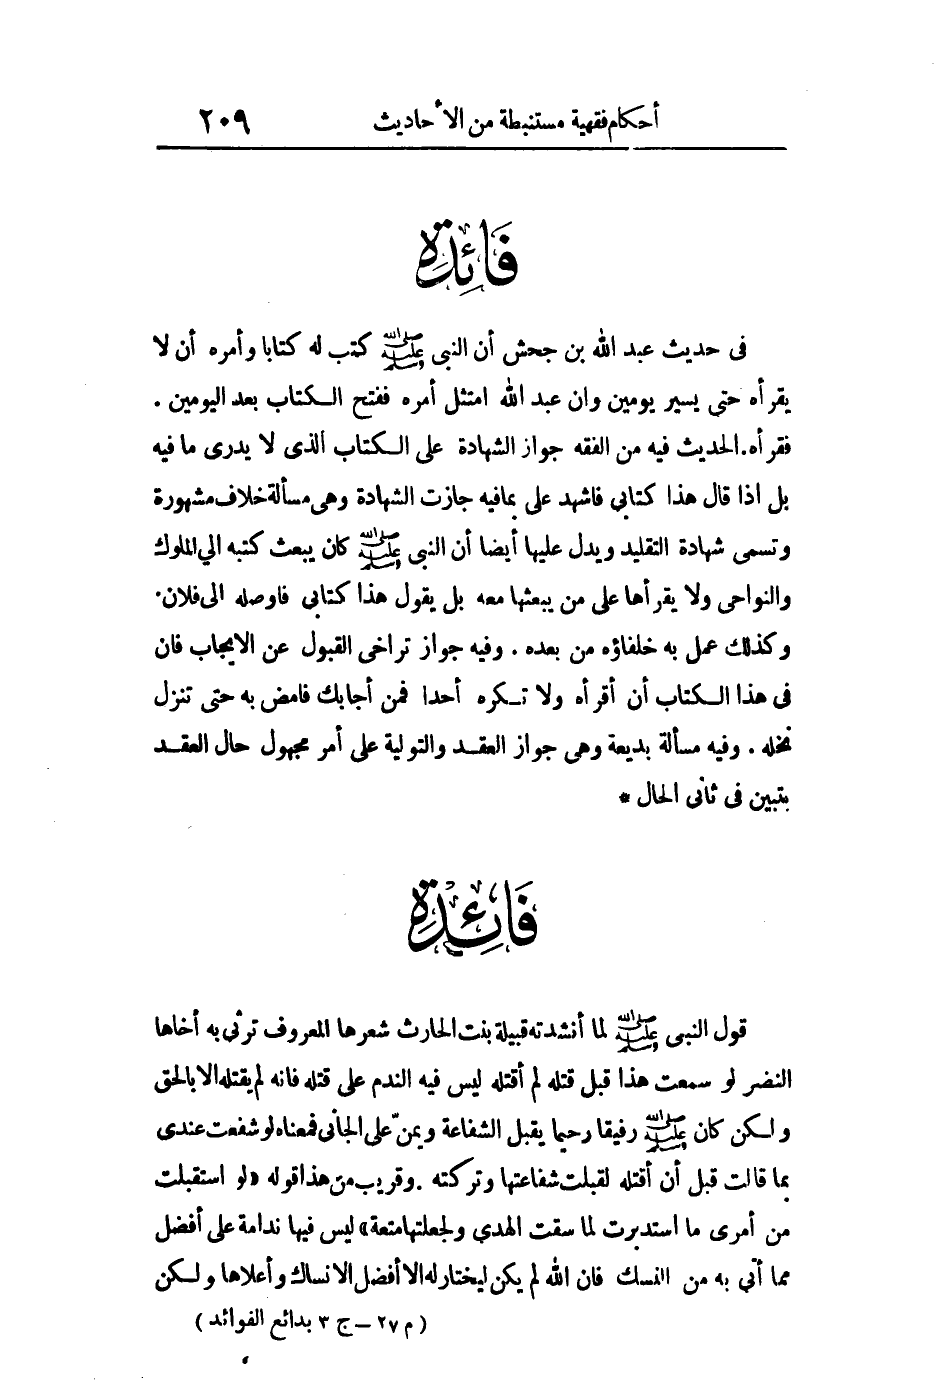 أحكام فقهية مستنبطة من الأحاديث ٢٠٩
فَائِدَة
فى حديث عبد الله بن جحش أن النبى ﷺ كتب له كتابا وأمره أن لا
يقرأه حتى يسير يومين وان عبد الله امتثل أمره ففتح الكتاب بعد اليومين .
فقرأه . الحديث فيه من الفقه جواز الشهادة على الكتاب الذى لا يدرى ما فيه
بل اذا قال هذا كتابي فاشهد على بمافيه جازت الشهادة وهى مسألة خلاف مشهورة
وتسمى شهادة التقليد ويدل عليها أيضا أن النبى ﷺ كان يبعث كتبه الي الملوك
والنواحى ولا يقرأها على من يبعثها معه بل يقول هذا كتابي فاوصله الى فلان .
وكذلك عمل به خلفاؤه من بعده . وفيه جواز تراخى القبول عن الايجاب فان
فى هذا الكتاب أن أقرأه ولا تكره أحدا فمن أجابك فامض به حتى تنزل
نخله . وفيه مسألة بديعة وهى جواز العقد والتولية على أمر مجهول حال العقد
يتبين فى ثانى الحال *
فَائِدَة
قول النبى ﷺ لما أنشدته قبيلة بنت الحارث شعرها المعروف ترثى به أخاها
النضر لو سمعت هذا قبل قتله لم أقتله ليس فيه الندم على قتله فانه لم يقتله الا بالحق
ولكن كان ﷺ رفيقا رحيما يقبل الشفاعة ويمنّ على الجانى فمعناه لو شفعت عندى
بما قالت قبل أن أقتله لقبلت شفاعتها وتركته . وقريب من هذا قوله «لو استقبلت
من أمرى ما استدبرت لما سقت الهدي ولجعلتها متعة» ليس فيها ندامة على أفضل
مما أتي به من النسك فان الله لم يكن ليختار له الا أفضل الانساك وأعلاها ولكن
( م ٢٧ – ج ٣ بدائع الفوائد )